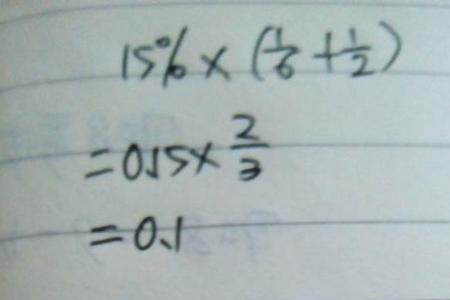 15% × (1/6 + 1/2)
= 0.15 × 2/3
= 0.1